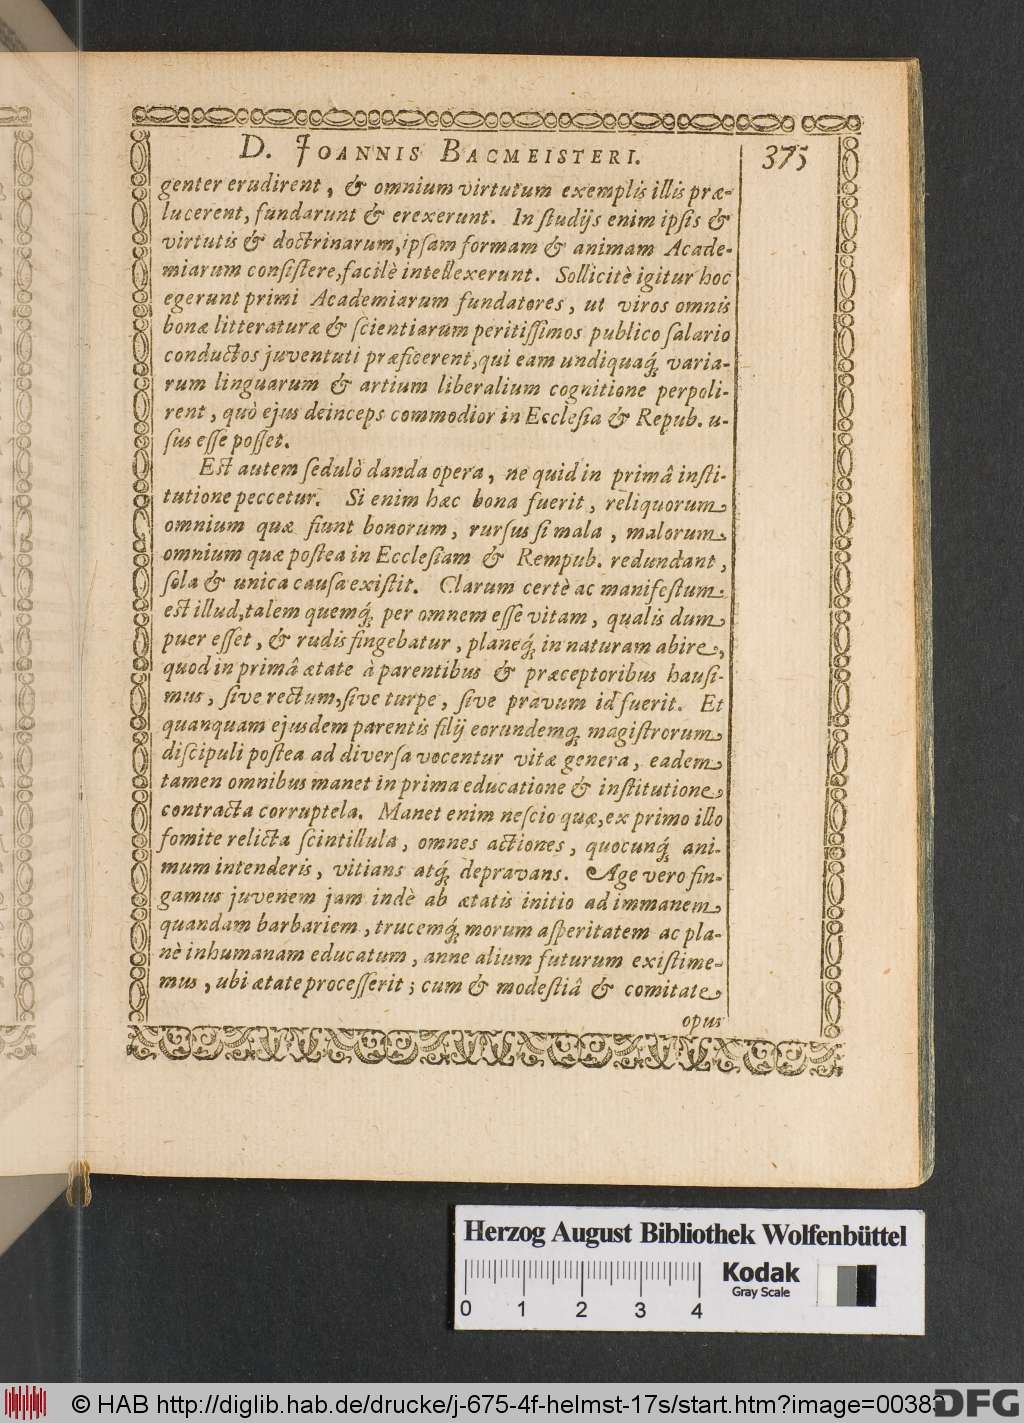 D. JOANNIS BACMEISTERI. 375
genter erudirent, & omnium virtutum exemplis illis præ-
lucerent, fundarunt & erexerunt. In ſtudijs enim ipſis &
virtutis & doctrinarum, ipſam formam & animam Acade-
miarum conſiſtere, facilè intellexerunt. Sollicitè igitur hoc
egerunt primi Academiarum fundatores, ut viros omnis
bonæ litteraturæ & ſcientiarum peritiſſimos publico ſalario
conductos juventuti præficerent, qui eam undiquaq́; varia-
rum linguarum & artium liberalium cognitione perpoli-
rent, quò ejus deinceps commodior in Eccleſia & Repub. u-
ſus eſſe poſſet.
Est autem ſedulò danda opera, ne quid in primâ inſti-
tutione peccetur. Si enim hæc bona fuerit, reliquorum
omnium quæ fiunt bonorum, rurſus ſi mala, malorum
omnium quæ poſtea in Eccleſiam & Rempub. redundant,
ſola & unica cauſa exiſtit. Clarum certè ac manifeſtum
est illud, talem quemq́; per omnem eſſe vitam, qualis dum
puer eſſet, & rudis fingebatur, planeq́; in naturam abire,
quod in primâ ætate à parentibus & præceptoribus hauſi-
mus, ſive rectum, ſive turpe, ſive pravum id fuerit. Et
quanquam ejusdem parentis filij eorundemq́; magiſtrorum
diſcipuli poſtea ad diverſa vocentur vitæ genera, eadem
tamen omnibus manet in prima educatione & inſtitutione
contracta corruptela. Manet enim neſcio quæ, ex primo illo
fomite relicta ſcintillula, omnes actiones, quocunq́; ani-
mum intenderis, vitians atq́; depravans. Age vero fin-
gamus juvenem jam indè ab ætatis initio ad immanem
quandam barbariem, trucemq́; morum aſperitatem ac pla-
nè inhumanam educatum, anne alium futurum exiſtime-
mus, ubi ætate proceſſerit; cum & modeſtiâ & comitate
opus
Herzog August Bibliothek Wolfenbüttel
Kodak
Gray Scale
0 1 2 3 4
© HAB http://diglib.hab.de/drucke/j-675-4f-helmst-17s/start.htm?image=00383
DFG